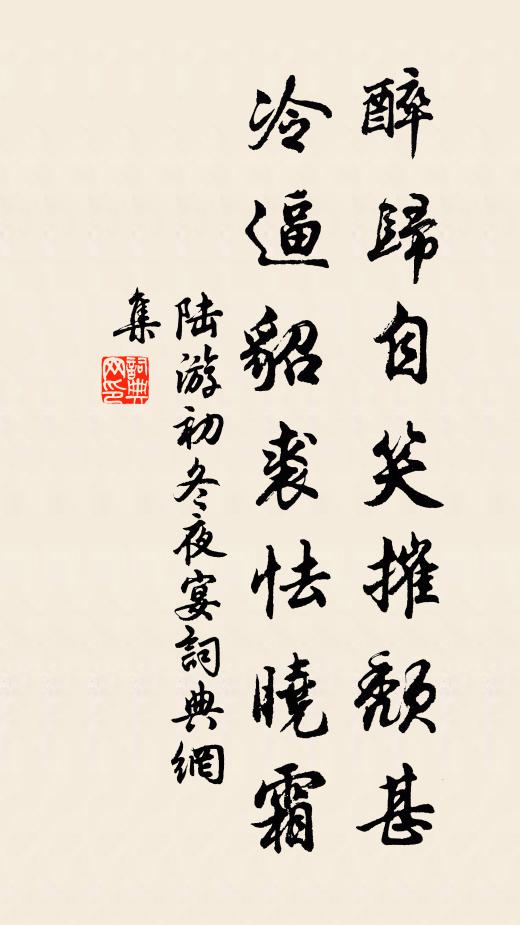 醉歸自笑摧頹甚
冷逼貂裘怯曉霜
陆游初冬夜宴詞典網
集
詞典
网印